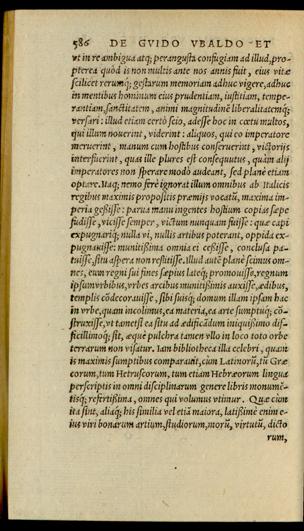 586 DE GVIDO VBALDO ET
vt in re ambigua atq; perangusta confugiam ad illud, pro-
pterea quòd is non multis ante nos annis fuit, eius vitæ
scilicet rerumq; gestarum memoriam adhuc vigere, adhuc
in mentibus hominum eius prudentiam, iustitiam, tempe-
rantiam, sanctitatem, animi magnitudinē liberalitatemq;
versari: illud etiam certò scio, adesse hoc in cœtu multos,
qui illum nouerint, viderint: aliquos, qui eo imperatore
meruerint, manum cum hostibus conseruerint, victorijs
interfuerint, quas ille plures est consequutus, quàm alij
imperatores non sperare modò audeant, sed planè etiam
optare. Itaq; nemo ferè ignorat illum omnibus ab Italicis
regibus maximis propositis præmijs vocatū, maxima im-
peria gessisse: parua manu ingentes hostium copias sæpe
fudisse, vicisse semper, victum nunquam fuisse: quæ capi
expugnariq; nulla vi, nullis artibus poterant, oppida ex-
pugnauisse: munitissima omnia ei cessisse, conclusa pa-
tuisse, situ aspera non restitisse. illud autē planè scimus om-
nes, eum regni sui fines sæpius lateq; promouisse, regnum
ipsum vrbibus, vrbes arcibus munitissimis auxisse, ædibus,
templis cōdecorauisse, sibi suisq; domum illam ipsam hac
in vrbe, quam incolimus, ea materia, ea arte sumptuq; cō-
struxisse, vt tametsi ea situ ad ædificādum iniquissimo dif-
ficillimoq; sit, æquè pulcra tamen vllo in loco toto orbe
terrarum non visatur. Iam bibliotheca illa celebri, quam
is maximis sumptibus comparauit, cùm Latinorū, tū Græ
corum, tum Hetruscorum, tum etiam Hebræorum lingua
perscriptis in omni disciplinarum genere libris monumē-
tisq; refertissima, omnes qui volumus vtimur. Quæ cùm
ita sint, aliaq; his similia vel etiā maiora, latissimè enim e-
ius viri bonarum artium, studiorum, morū, virtutū, dicto
rum,